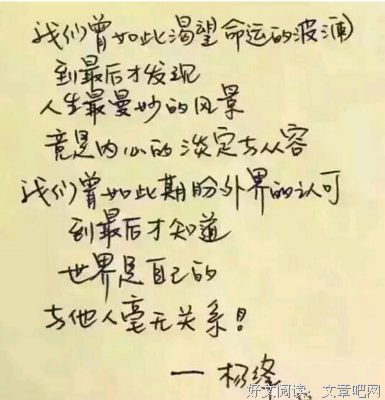 我们曾如此渴望命运的波澜
到最后才发现
人生最曼妙的风景
竟是内心的淡定与从容
我们曾如此期盼外界的认可
到最后才知道
世界是自己的
与他人毫无关系！
— 杨绛
好文阅读：文章吧网